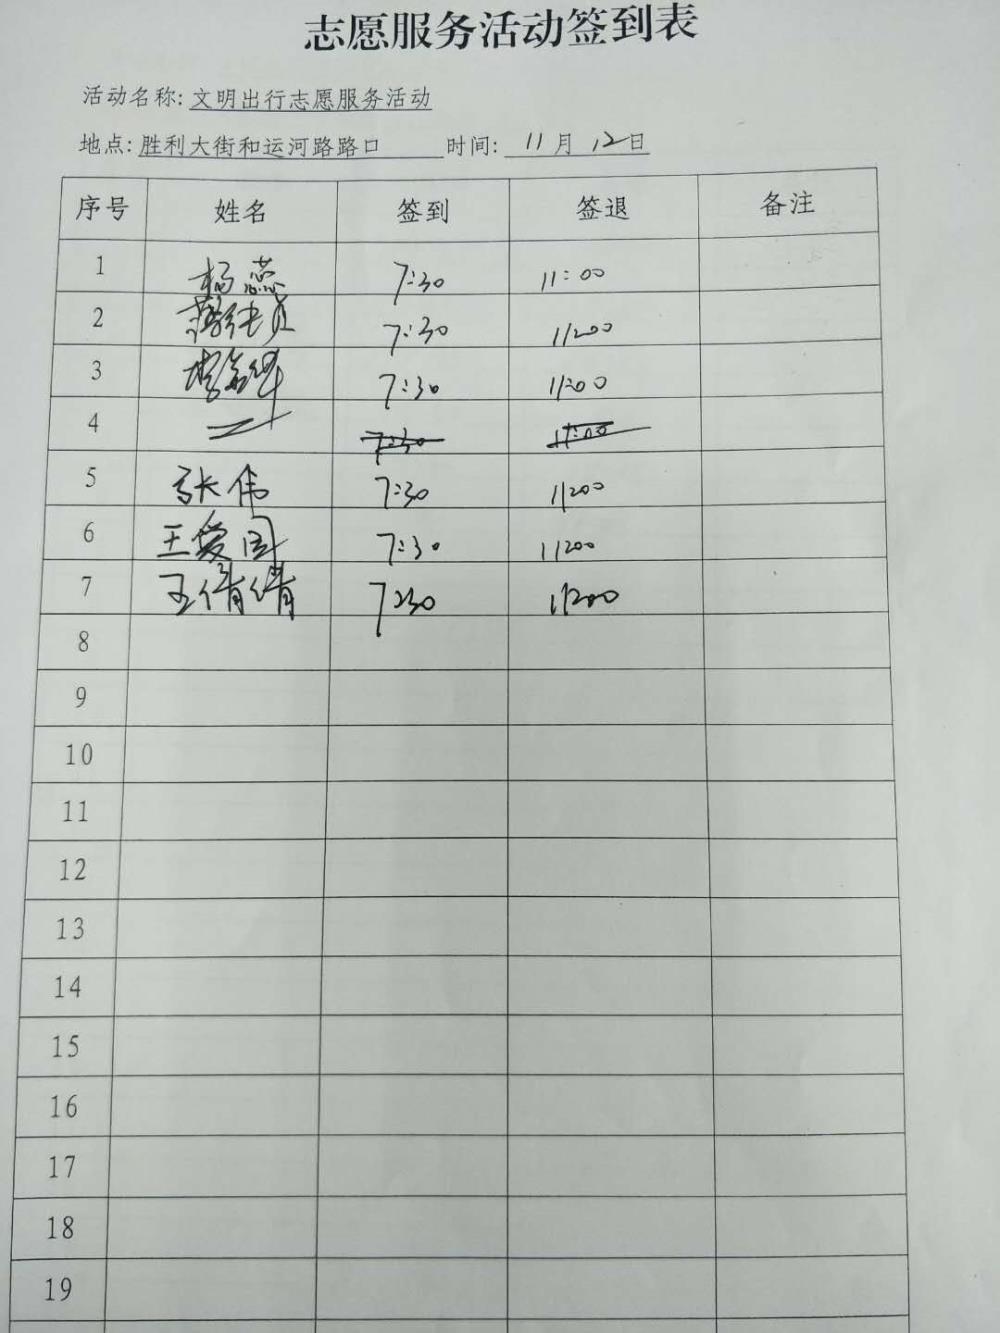 志愿服务活动签到表
活动名称: 文明出行志愿服务活动
地点: 胜利大街和运河路路口 时间: 11月12日
序号 姓名 签到 签退 备注
1 杨蕊 7:30 11:00
2 7:30 11:00
3 7:30 11:00
4 7:30 11:00
5 张伟 7:30 11:00
6 王爱国 7:30 11:00
7 王倩倩 7:30 11:00
8
9
10
11
12
13
14
15
16
17
18
19